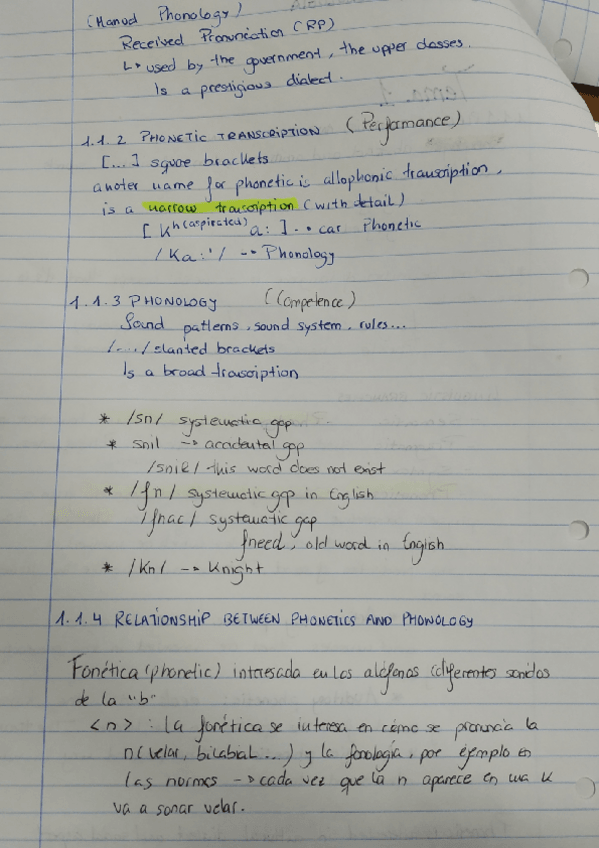 (Manual Phonology)
Received Pronunciation (RP)
↳ used by the government, the upper classes.
Is a prestigious dialect.
1.1.2 PHONETIC TRANSCRIPTION (Performance)
[...] square brackets
anoter name for phonetic is allophonic transcription,
is a narrow transcription (with detail)
[Kʰ(aspirated) a: ] -• car Phonetic
/Ka:'/ --• Phonology
1.1.3 PHONOLOGY (Competence)
Sound patterns, sound system, rules...
/.../ slanted brackets
Is a broad transcription
* /sn/ systematic gap
* snil --> accidental gap
/snil/ this word does not exist
* /fn/ systematic gap in English
/fnac/ systematic gap
fneed, old word in English
* /kn/ --• Knight
1.1.4 RELATIONSHIP BETWEEN PHONETICS AND PHONOLOGY
Fonética (phonetic) interesada en los alófonos (diferentes sonidos
de la "b"
<n> : la fonética se interesa en cómo se pronuncia la
n (velar, bilabial...) y la fonología, por ejemplo en
las normas --> cada vez que la n aparece en una k
va a sonar velar.